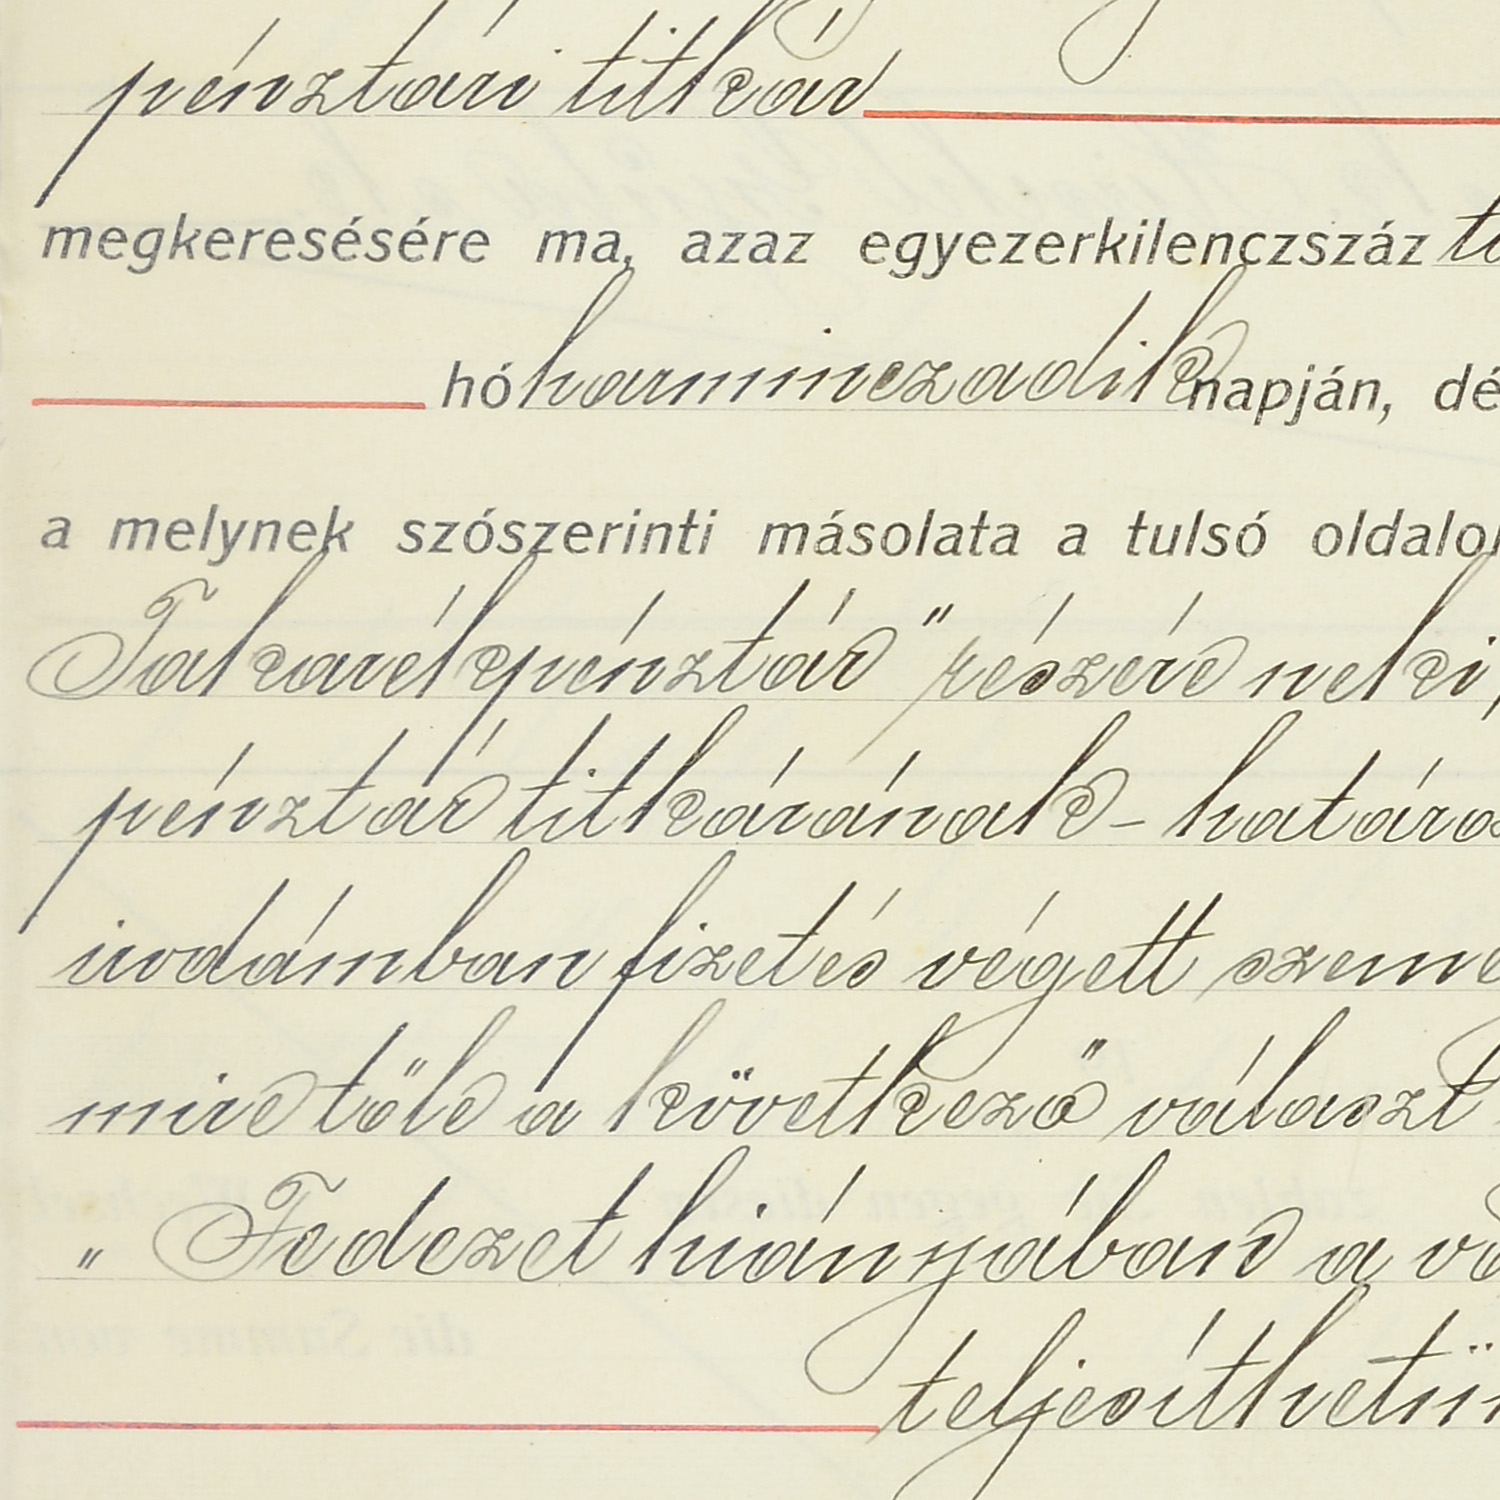 pénztári titkár
megkeresésére ma, azaz egyezerkilenczszáz
hó harminczadik napján, dé
a melynek szószerinti másolata a tulsó oldalon
Takarékpénztár" részére neki,
pénztár titkárának - határo
irodámban fizetés végett szeme
mire tőle a következő választ
"Fedezet hiányában a vá
teljesíthetün